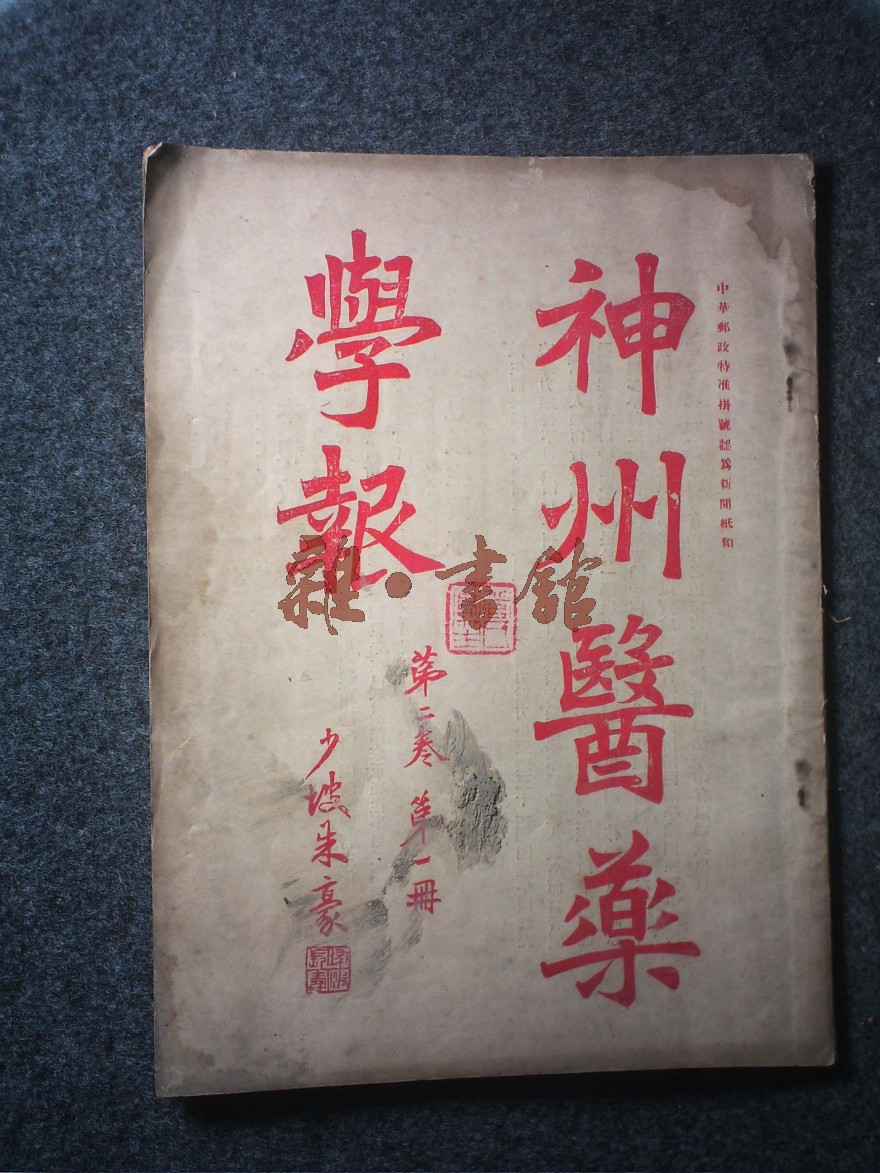 中華郵政特准掛號認爲新聞紙類
神州醫藥
學報
第二卷 第一冊
少坡朱豪
雜·書館